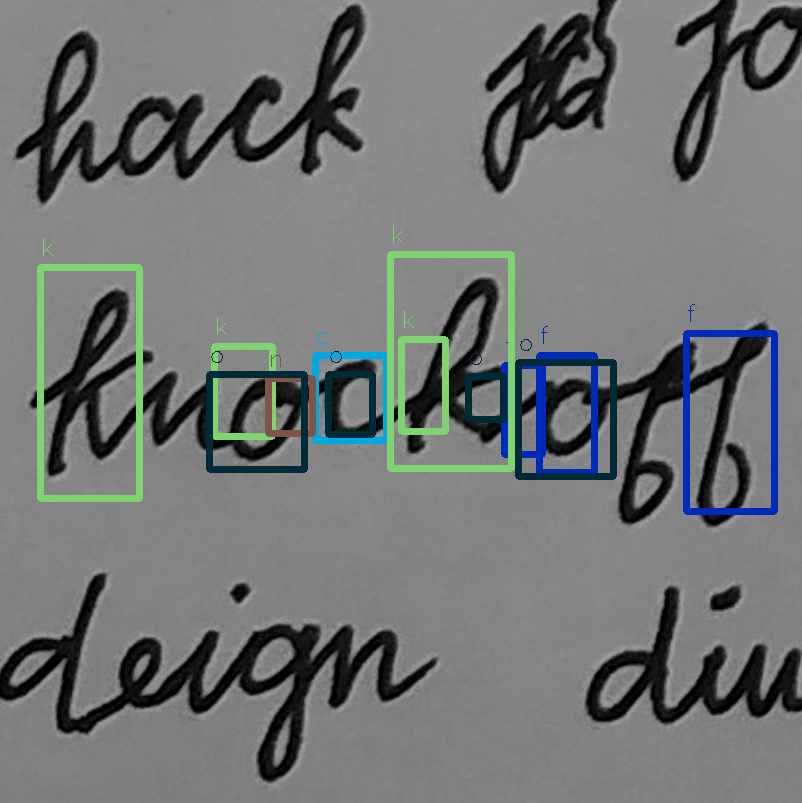 hack jo
k k
k o n c o k o o f f
knockoff
deign